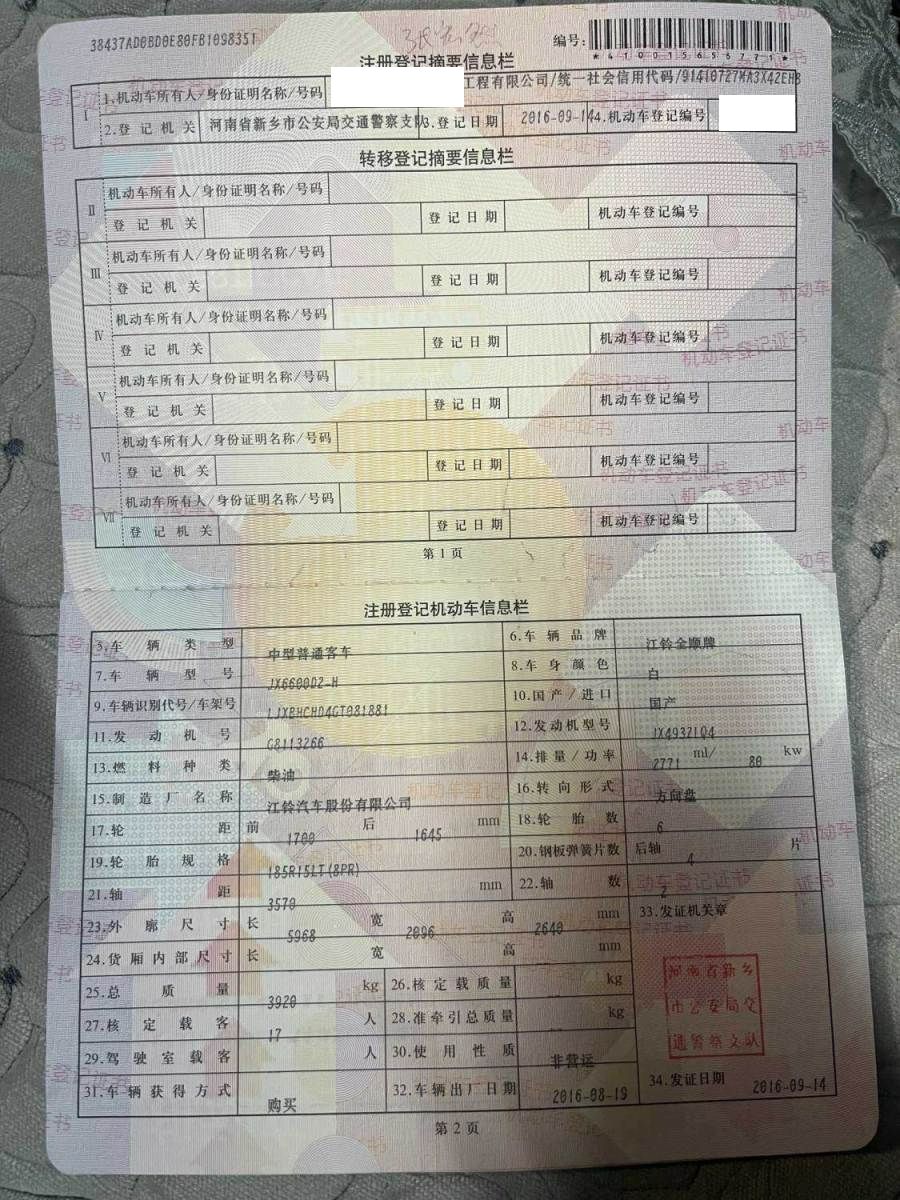 38437AD0BD0E80FB1098351
编号:
*410015655771*
注册登记摘要信息栏
I
1.机动车所有人/身份证明名称/号码 工程有限公司/统一社会信用代码/91410727MA3X42EH8
2.登记机关 河南省新乡市公安局交通警察支队 3.登记日期 2016-09-14 4.机动车登记编号
转移登记摘要信息栏
II 机动车所有人/身份证明名称/号码
登记机关 登记日期 机动车登记编号
III 机动车所有人/身份证明名称/号码
登记机关 登记日期 机动车登记编号
IV 机动车所有人/身份证明名称/号码
登记机关 登记日期 机动车登记编号
V 机动车所有人/身份证明名称/号码
登记机关 登记日期 机动车登记编号
VI 机动车所有人/身份证明名称/号码
登记机关 登记日期 机动车登记编号
VII 机动车所有人/身份证明名称/号码
登记机关 登记日期 机动车登记编号
第1页
注册登记机动车信息栏
5.车辆类型 中型普通客车 6.车辆品牌 江铃全顺牌
7.车辆型号 JX6600D2-H 8.车身颜色 白
9.车辆识别代号/车架号 LJXBHCHD4GT081881 10.国产/进口 国产
11.发动机号 G8113266 12.发动机型号 JX493ZLQ4
13.燃料种类 柴油 14.排量/功率 2771 ml/ 80 kw
15.制造厂名称 江铃汽车股份有限公司 16.转向形式 方向盘
17.轮距 前 1700 后 1645 mm 18.轮胎数 6
19.轮胎规格 185R15LT(8PR) 20.钢板弹簧片数 后轴 4 片
21.轴距 3570 mm 22.轴数 2
23.外廓尺寸 长 5968 宽 2096 高 2640 mm 33.发证机关章
24.货厢内部尺寸 长 宽 高 mm
25.总质量 3920 kg 26.核定载质量 kg
27.核定载客 17 人 28.准牵引总质量 kg
河南省新乡
市公安局交
通警察支队
29.驾驶室载客 人 30.使用性质 非营运
31.车辆获得方式 购买 32.车辆出厂日期 2016-08-19 34.发证日期 2016-09-14
第2页